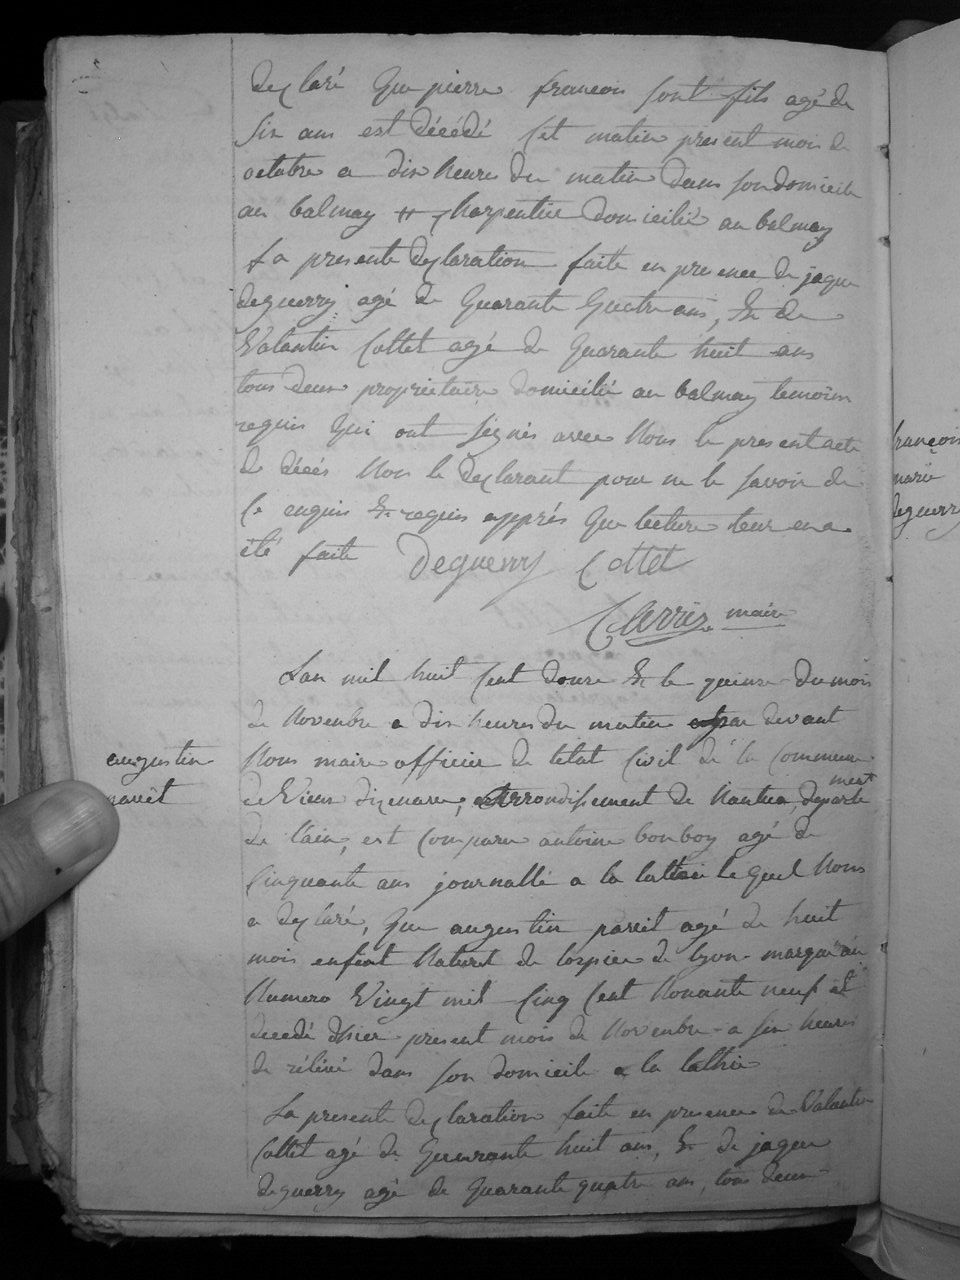 declaré que pierre francois sont fils agé de
six ans est décédé cet matin present mois de
octobre a dix heures du matin dans son domicile
au balmay # charpentier domicilié au balmay
La presente declaration faite en presence de jaque
deguerry agé de quarante quatre ans, & de
Valantin Cottet agé de quarante huit ans
tous deux propriétaire domicilié au balmay temoins
requis qui ont signés avec Nous le present acte
de décés Non le declarant pour ne le savoir de
ce enquis & requis apprés que lecture leur en a
été faite Deguerry Cottet
maire
Lan mil huit Cent douze & le quinze du mois
de Novembre a dix heures du matin par devant
Nous maire officier de létat Civil de la Commune
de Vieux dizenave, Arrondissement de Nantua, departement
de lain, est Comparu antoine bonboy agé de
Cinquante ans journallié a la lattie le quel Nous
a declaré, que augustin pareit agé de huit
mois enfant Naturel de lospice de lyon marque au
Numero Vingt mil Cinq Cent Nonante neuf est
decedé dhier present mois de Novembre a six heures
de rélévé dans son domicile a la lathie
La presente declaration faite en presence de Valantin
Cottet agé de Quarante huit ans, & de jaque
deguerry agé de quarante quatre ans, tous deux
augustin
pareit
françois
marie
deguerry